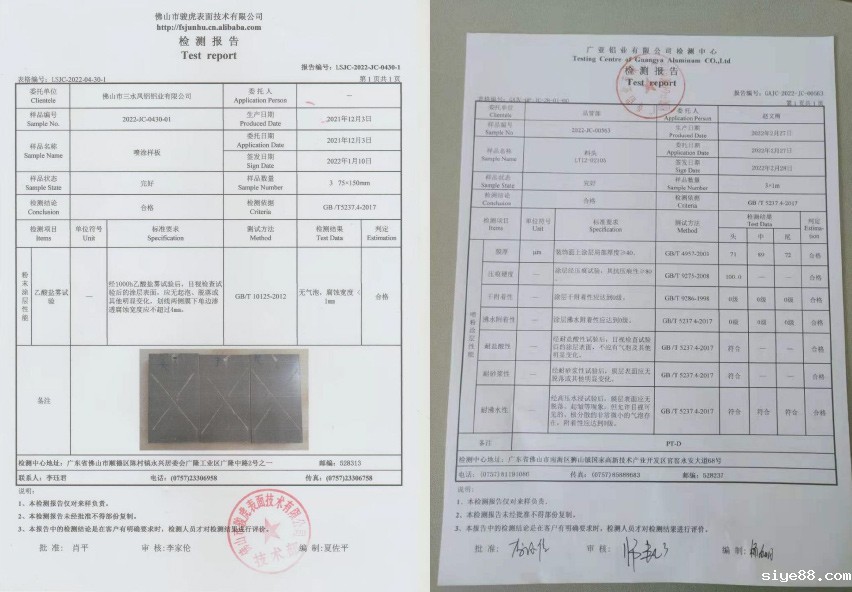 佛山市骏虎表面技术有限公司
http://fsjunhu.cn.alibaba.com
检 测 报 告
Test report
报告编号: LSJC-2022-JC-0430-1
表格编号: LSJC-2022-04-30-1 第1页共1页
委托单位 Clientele 佛山市三水凤铝铝业有限公司 委 托 人 Application Person —
样品编号 Sample No. 2022-JC-0430-01 生产日期 Produced Date 2021年12月3日
样品名称 Sample Name 喷涂样板 委托日期 Application Date 2021年12月3日
签发日期 Sign Date 2022年1月10日
样品状态 Sample State 完好 样品数量 Sample Number 3 75×150mm
检测结论 Conclusion 合格 检测依据 Criteria GB /T5237.4-2017
检测项目 Items 单位符号 Unit 标准要求 Specification 测试方法 Method 检测结果 Test Data 判定 Estimation
粉末涂层性能 乙酸盐雾试验 — 经1000h乙酸盐雾试验后,目视检查试验后的涂层表面,应无起泡、脱落或其他明显变化,划线两侧膜下单边渗透腐蚀宽度应不超过4mm。 GB/T 10125-2012 无气泡,腐蚀宽度<1mm 合格
备注
检测中心地址: 广东省佛山市顺德区陈村镇永兴居委会广隆工业区广隆中路2号之一 邮编: 528313
联系人: 李珏君 电话: (0757)23306958 传真: (0757)23306758
说明:
1、本检测报告仅对来样负责.
2、本检测报告未经批准不得部份复制。
3、本报告中的检测结论是在客户有明确要求时,检测人员才对检测结果进行评价。
批 准: 肖平 审 核: 李家伦 编 制: 夏佐平
佛山市骏虎表面技术有限公司
技术部
广亚铝业有限公司检测中心
Testing Centre of Guangya Aluminum CO.,Ltd
检 测 报 告
Test report
报告编号: GAJC-2022-JC-00563
第1页共1页
委托单位 Clientele 委 托 人 Application Person
样品编号 Sample No 2022-JC-00563 生产日期 Produced Date 2022年2月27日
样品名称 Sample Name 委托日期 Application Date
签发日期 Sign Date 2022年2月28日
样品状态 Sample State 完好 样品数量 Sample Number
检测结论 Conclusion 合格 检测依据 Criteria GB /T 5237.4-2017
检测项目 Items 单位符号 Unit 标准要求 Specification 测试方法 Method 检测结果 Test Data 头 中 尾 判定 Estimation
膜厚 μm 装饰面上涂层局部厚度≥40。 GB/T 4957-2003 合格
压痕硬度 — GB/T 9275-2008 100.0 — — 合格
干附着性 — 涂层干附着性应达到0级。 0级 0级 0级 合格
沸水附着性 — 涂层沸水附着性应达到0级。 GB/T 5237.4-2017 0级 0级 0级 合格
耐盐酸性 — GB/T 5237.4-2017 符合 — — 合格
耐砂浆性 — GB/T 5237.4-2017 符合 — — 合格
耐沸水性 — GB/T 5237.4-2017 符合 符合 符合 合格
备注 PT-D
检测中心地址: 广东省佛山市南海区狮山镇国家高新技术产业开发区官窑永安大道68号
传真: (0757)85889683 邮编: 528237
说明:
1、本检测报告仅对来样负责.
2、本检测报告未经批准不得部份复制。
3、本报告中的检测结论是在客户有明确要求时,检测人员才对检测结果进行评价。
批 准: 审 核: 编 制:
siye88.com